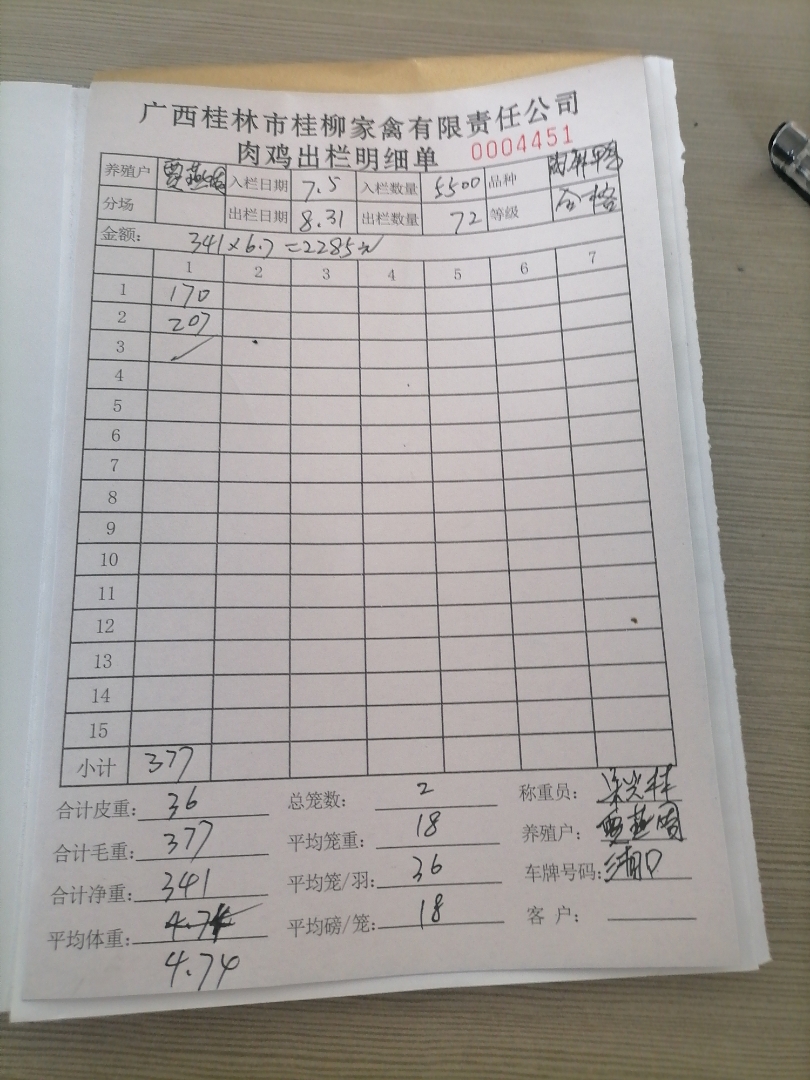 广西桂林市桂柳家禽有限责任公司
肉鸡出栏明细单 0004451
养殖户 入栏日期 7.5 入栏数量 5500 品种
分场 出栏日期 8.31 出栏数量 72 等级 合格
金额: 341×6.7=2285元
1 2 3 4 5 6 7
1 170
2 207
3 ✓
4
5
6
7
8
9
10
11
12
13
14
15
小计 377
合计皮重: 36 总笼数: 2 称重员:
合计毛重: 377 平均笼重: 18 养殖户:
合计净重: 341 平均笼/羽: 36 车牌号码:
平均体重: 平均磅/笼: 18 客户:
4.74